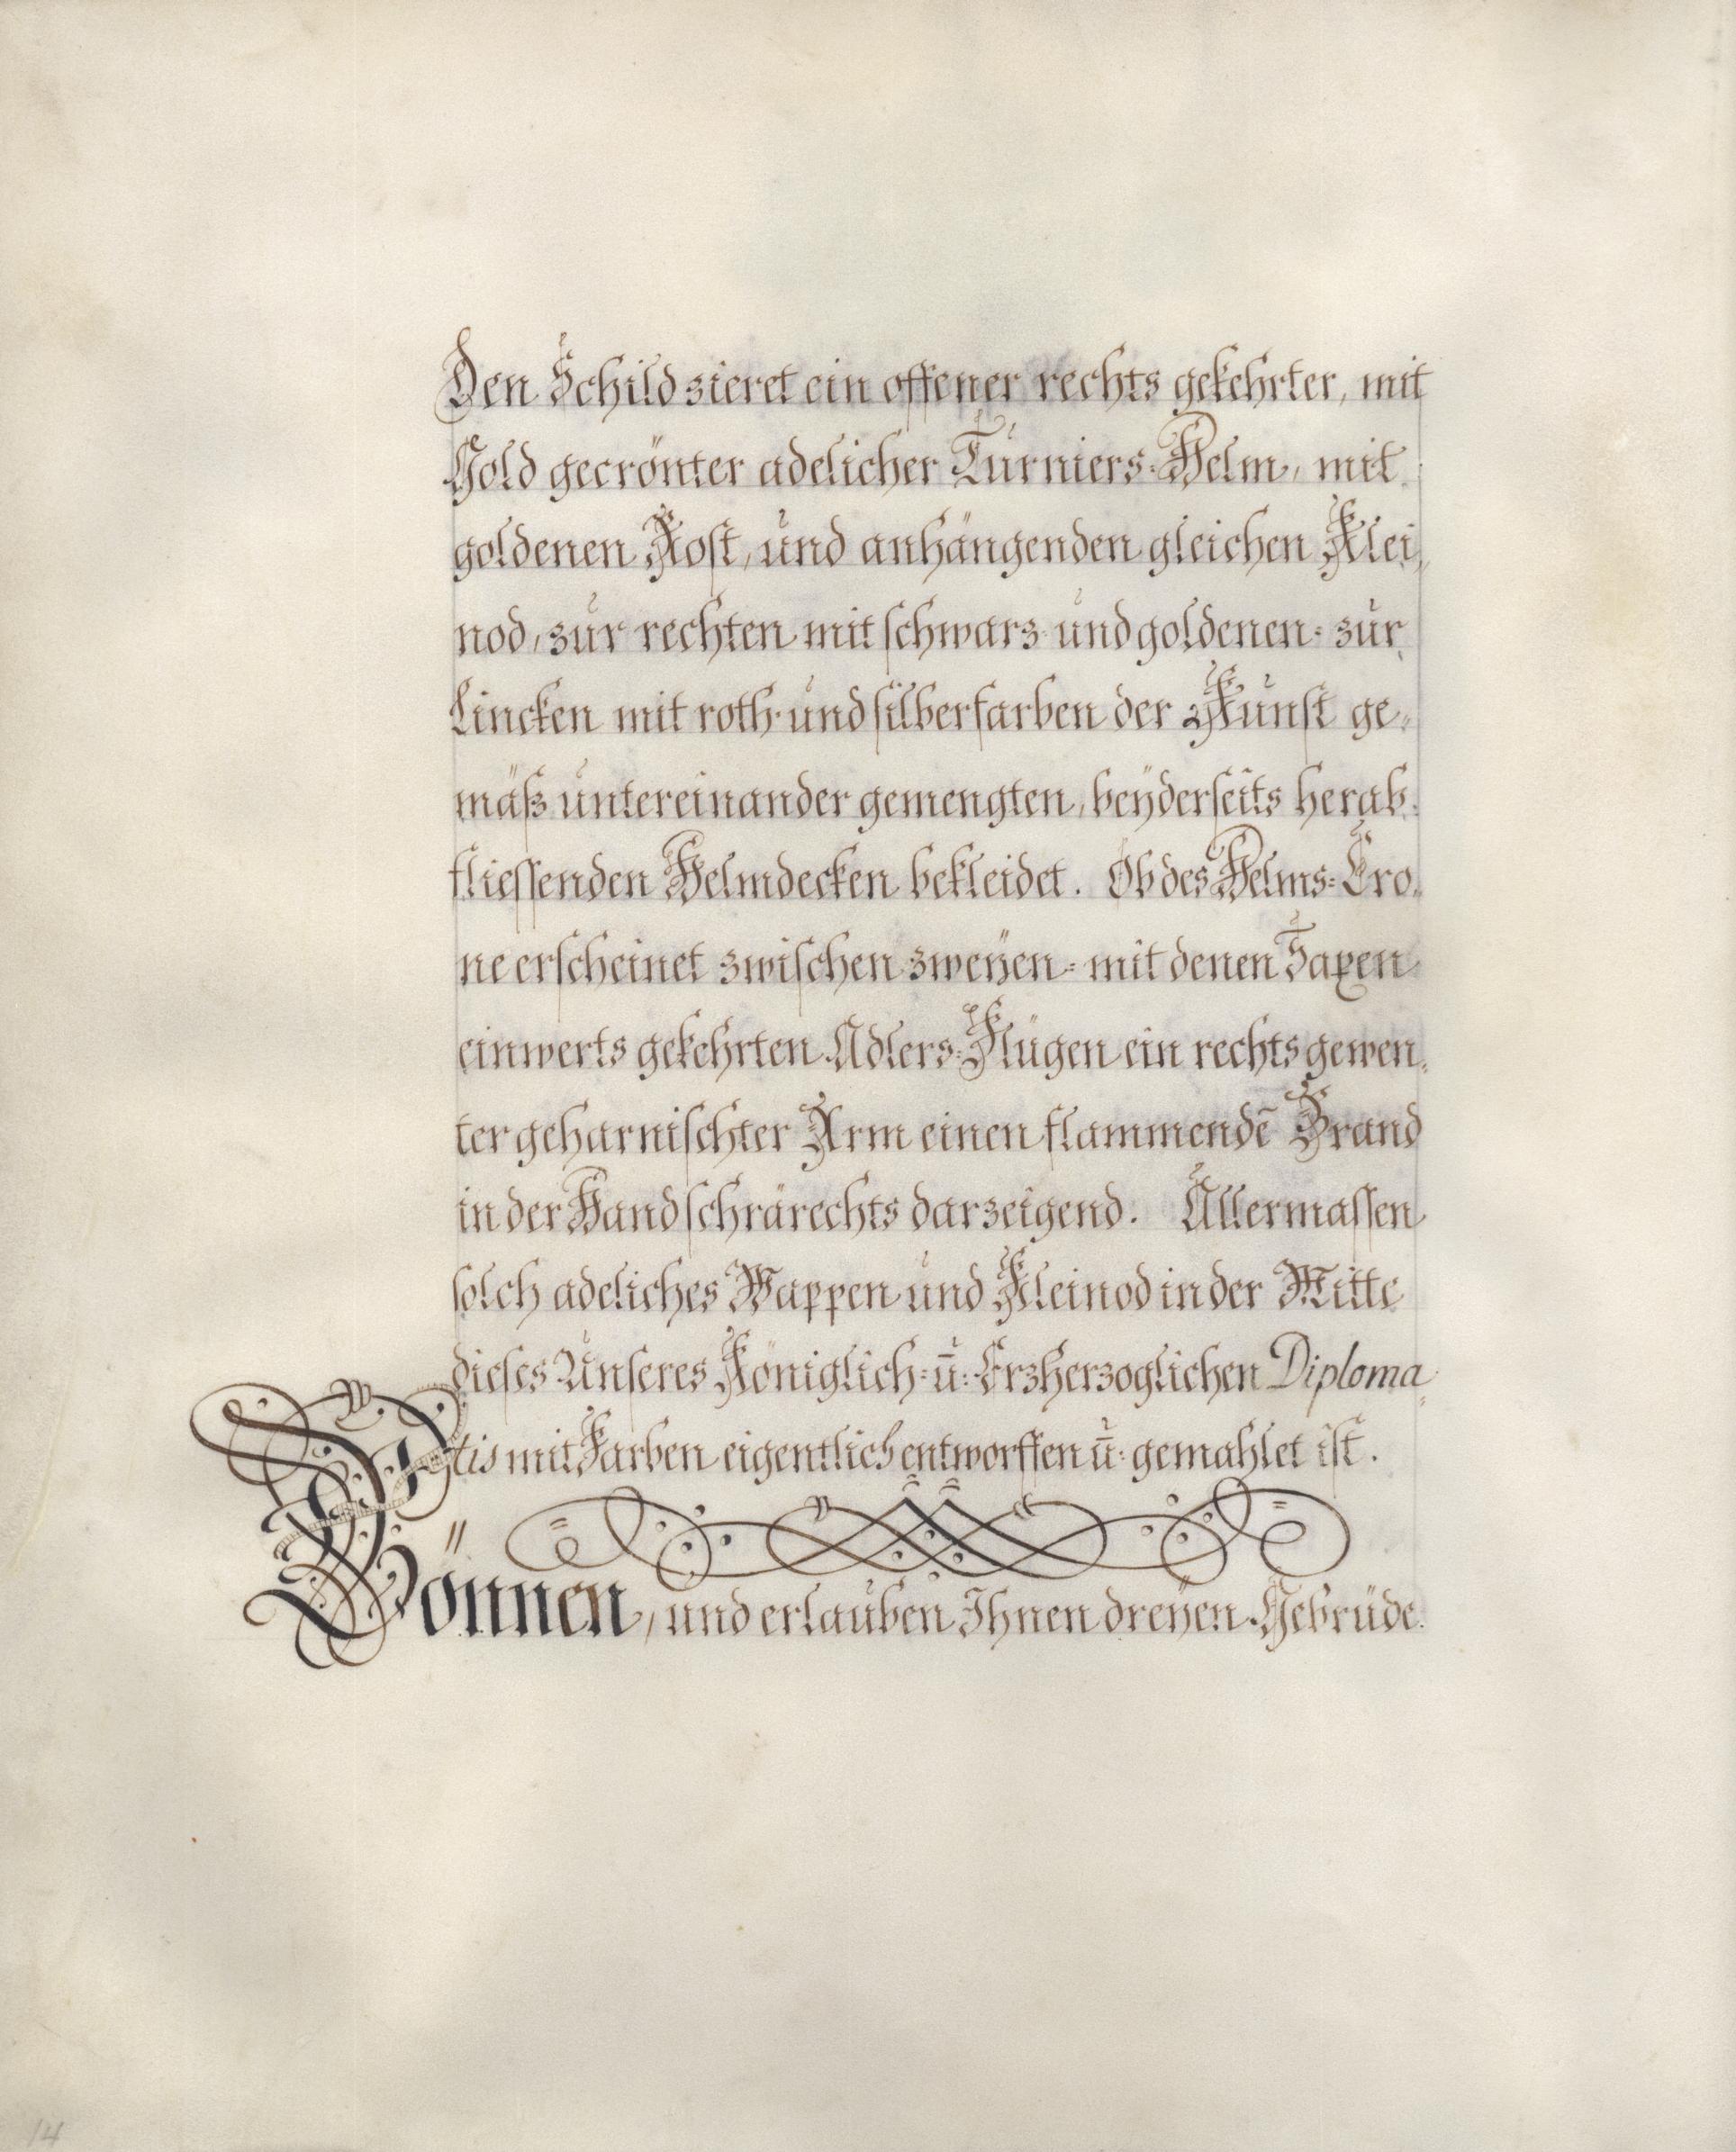 Den Schild zieret ein offener rechts gekehrter, mit
Gold gecrönter adelicher Turniers-Helm, mit
goldenen Rost, und anhängenden gleichen Klei,
nod, zur rechten mit schwarz- und goldenen- zur
Lincken mit roth- und silberfarben der Kunst ge-
mäß untereinander gemengten, beÿderseits herab-
fliessenden Helmdecken bekleidet. Ob des Helms-Cro-
ne erscheinet zwischen zweÿen- mit denen Saxen
einwerts gekehrten Adlers-Flügen ein rechts gewen-
ter geharnischter Arm einen flammendē Brand
in der Hand schrärechts darzeigend. Allermassen
solch adeliches Wappen und Kleinod in der Mitte
dieses Unseres Königlich- ū: Erzherzoglichen Diploma-
tis mit Farben eigentlich entworffen ū: gemahlet ist.
Gönnen, und erlauben Ihnen dreÿen Gebrüde-
14